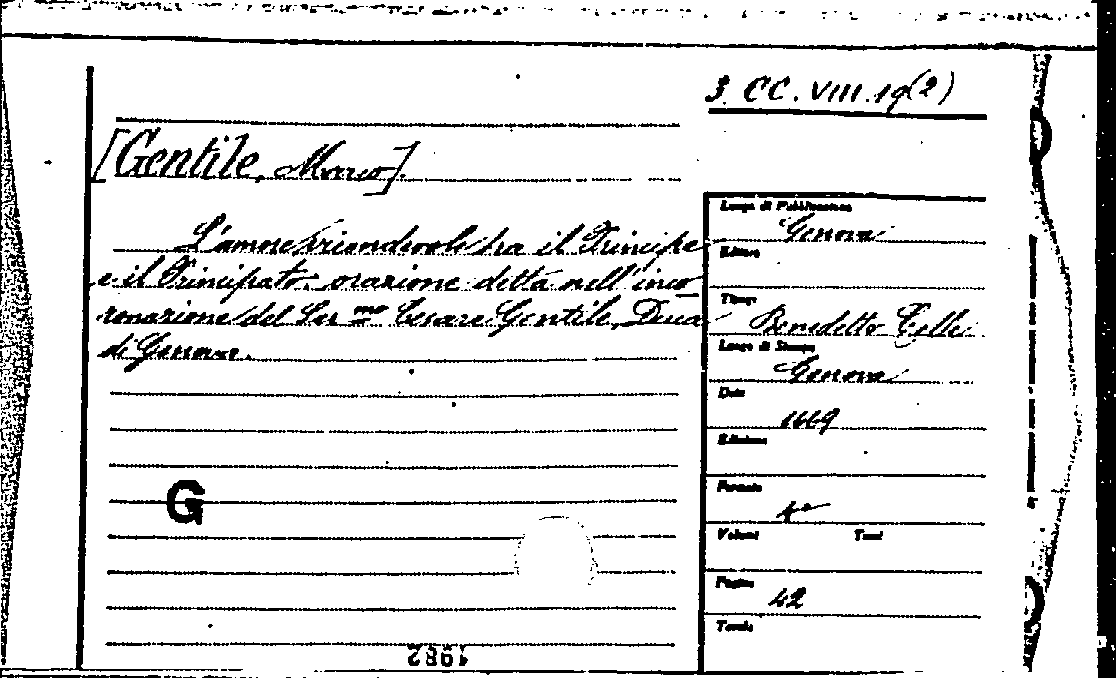 3. CC. VIII. 19(2)
[Gentile, Marco].
L'amore vicendevole tra il Principe
e il Principato: orazione detta nell'inco
ronazione del Ser mo Cesare Gentile, Duca
di Genova.
Luogo di Pubblicazione
Genova
Editore
Tipogr.
Benedetto Celle
Luogo di Stampa
Genova
Data
1669
Edizione
Formato
4°
Volumi Tomi
Pagine
42
Tavole
G
1982